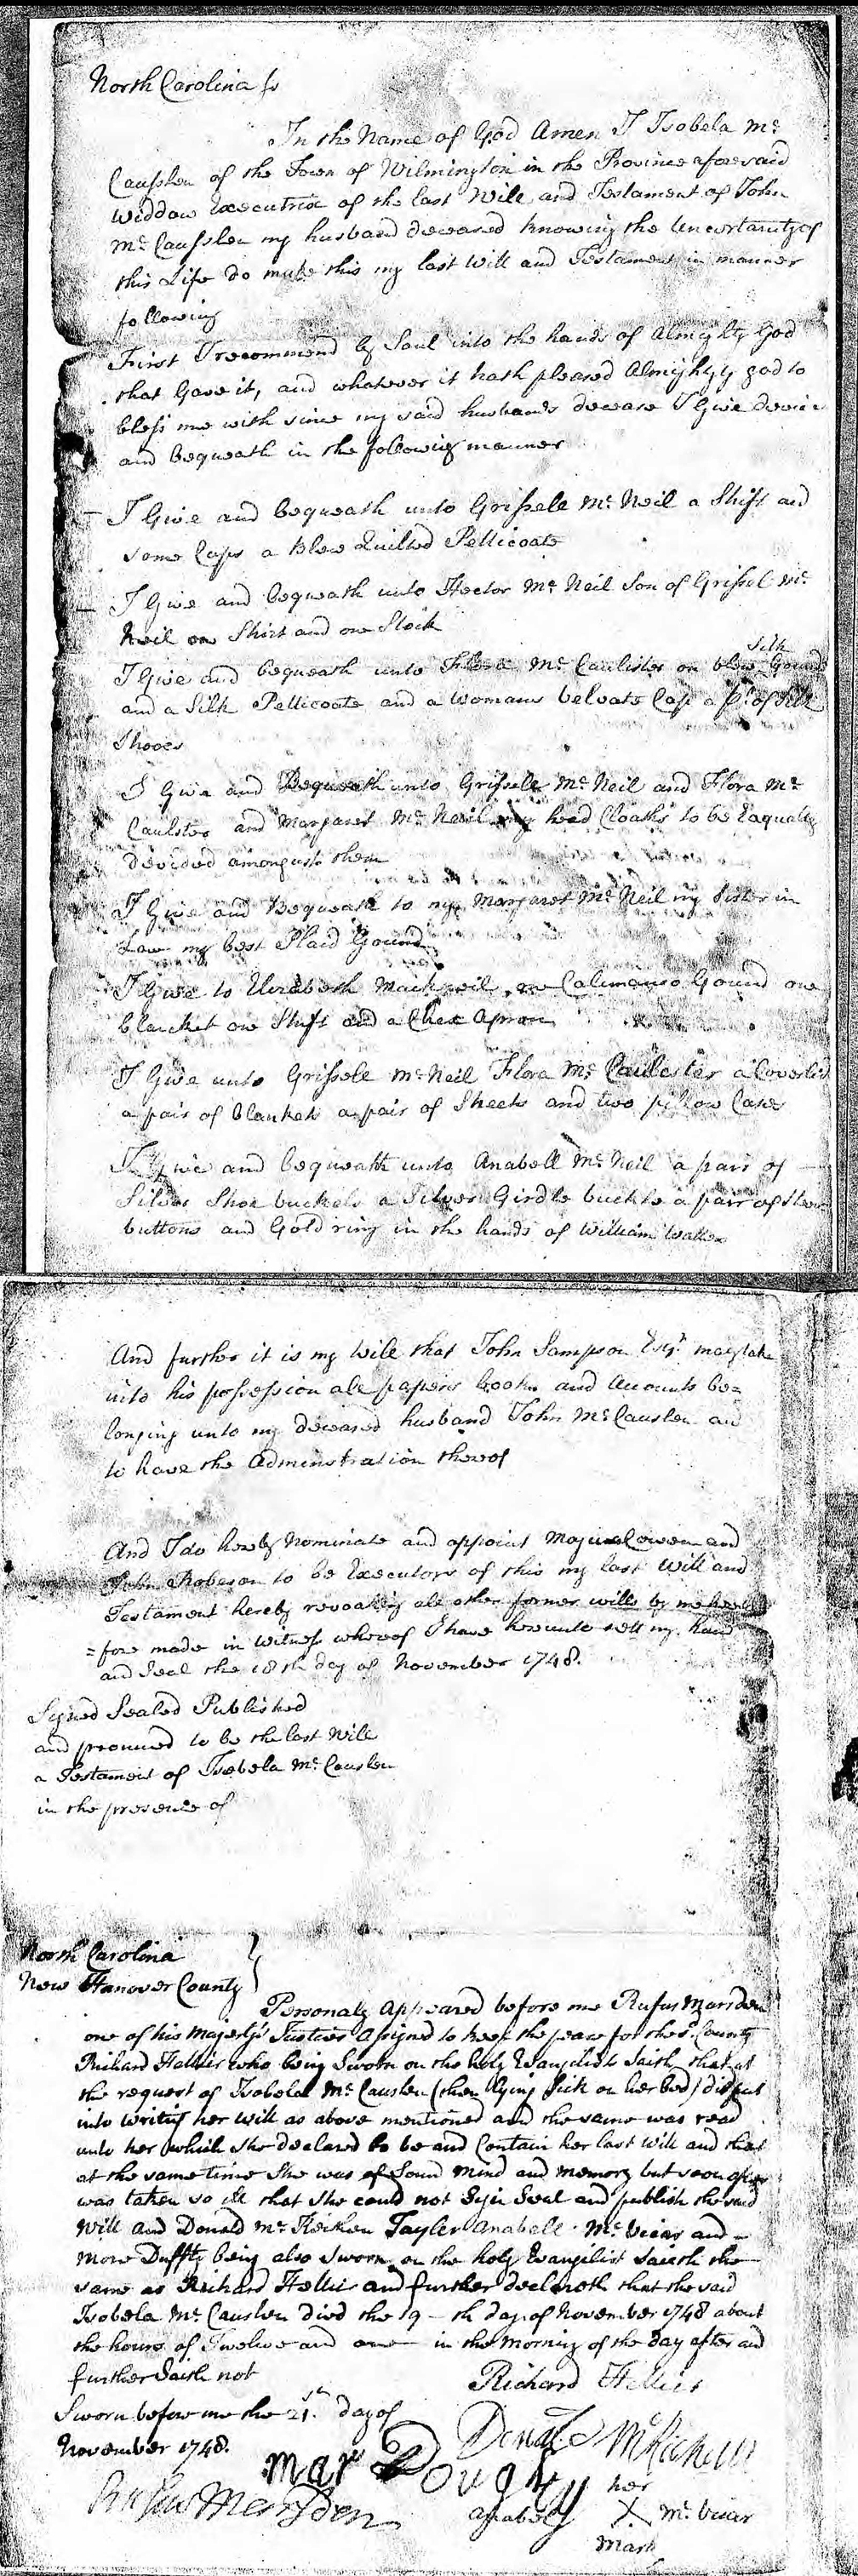 North Carolina ss
In the Name of God Amen I Isobela Mc
Causlen of the Town of Wilmington in the Province aforesaid
Widdow Executrix of the last Will and Testament of John
Mc Causslen my husband deceased knowing the Uncertanty of
this Life do make this my last Will and Testament in manner
following
First I recommend by Soul into the hands of Almighty God
that Gave it, and whatever it hath pleased Almighty god to
bless me with since my said husbands decease I Give devise
and bequeath in the following manner
I Give and bequeath unto Grissele Mc Neil a Shift and
some Caps a Blew Quilted Petticoate
I Give and bequeath unto Hector Mc Neil Son of Grissel Mc
Neil one Shirt and one Stock
I Give and bequeath unto Flora Mc Caulister on blew Silk Gound
and a Silk Petticoate and a womans velvate Cap a pr. of Silk
Shooes
I Give and Bequeath unto Grissele Mc Neil and Flora Mc
Caulster and Margaret Mc Neil my head Cloaths to be Eaqually
devided amongust them
I Give and Bequeath to my Margaret Mc Neil my Sister in
Law my best Plaid Gound
I Give to Elizabeth Mackneil one Calimanco Gound one
blancket one Shift and a Chex Apron
I Give unto Grissele Mc Neil Flora Mc Caulester a Coverlid
a pair of blankets a pair of Sheets and two pillow Cases
I Give and bequeath unto Anabell Mc Neil a pair of
Silver Shoe buckels a Silver Girdle buckle a pair of
buttons and Gold ring in the hands of William Walker
And further it is my will that John Sampson Esqr. may take
into his possession all papers books and Accounts be=
longing unto my deceased husband John Mc Causlen and
to have the Adminstration therof
And I do hereby Nominate and appoint and
John Robeson to be Executors of this my last Will and
Testament hereby revoaking all other former wills by me
=fore made in Witness whereof I have hereunto sett my hand
and Seal the 18th day of November 1748.
Signed Sealed Published
and pronunced to be the last Will
a Testament of Isobela Mc Causlen
in the presence of
North Carolina }
New Hanover County }
Personaly Appeared before me Rufus Marsden
one of his Majestys Justices Asigned to keep the peace for the sd. County
Richard Hellier who being Sworn on the holy Evangelists Saith that at
the request of Isobela Mc Causlen (then lying Sick on her bed) did put
into writing her will as above mentioned and the same was read
unto her which she declared to be and Contain her last Will and that
at the same time she was of Sound mind and memory but soon after
was taken so ill that she could not Sign Seal and publish the said
Will and Donald Mc Tayler Anabell Mc Vicar and
more Duffty being also Sworn on the holy Evangilist Saieth the
same as Richard Hellier and further declareth that the said
Isobela Mc Causlen died the 19 th day of November 1748 about
the hours of Twelve and one in the Morning of the day after and
further Saith not
Richard Hellier
Sworn before me the 21.th day of
November 1748.
Donald
mar Doughty
her
Rufus Marsden
Anabell X Mc Vicar
mark